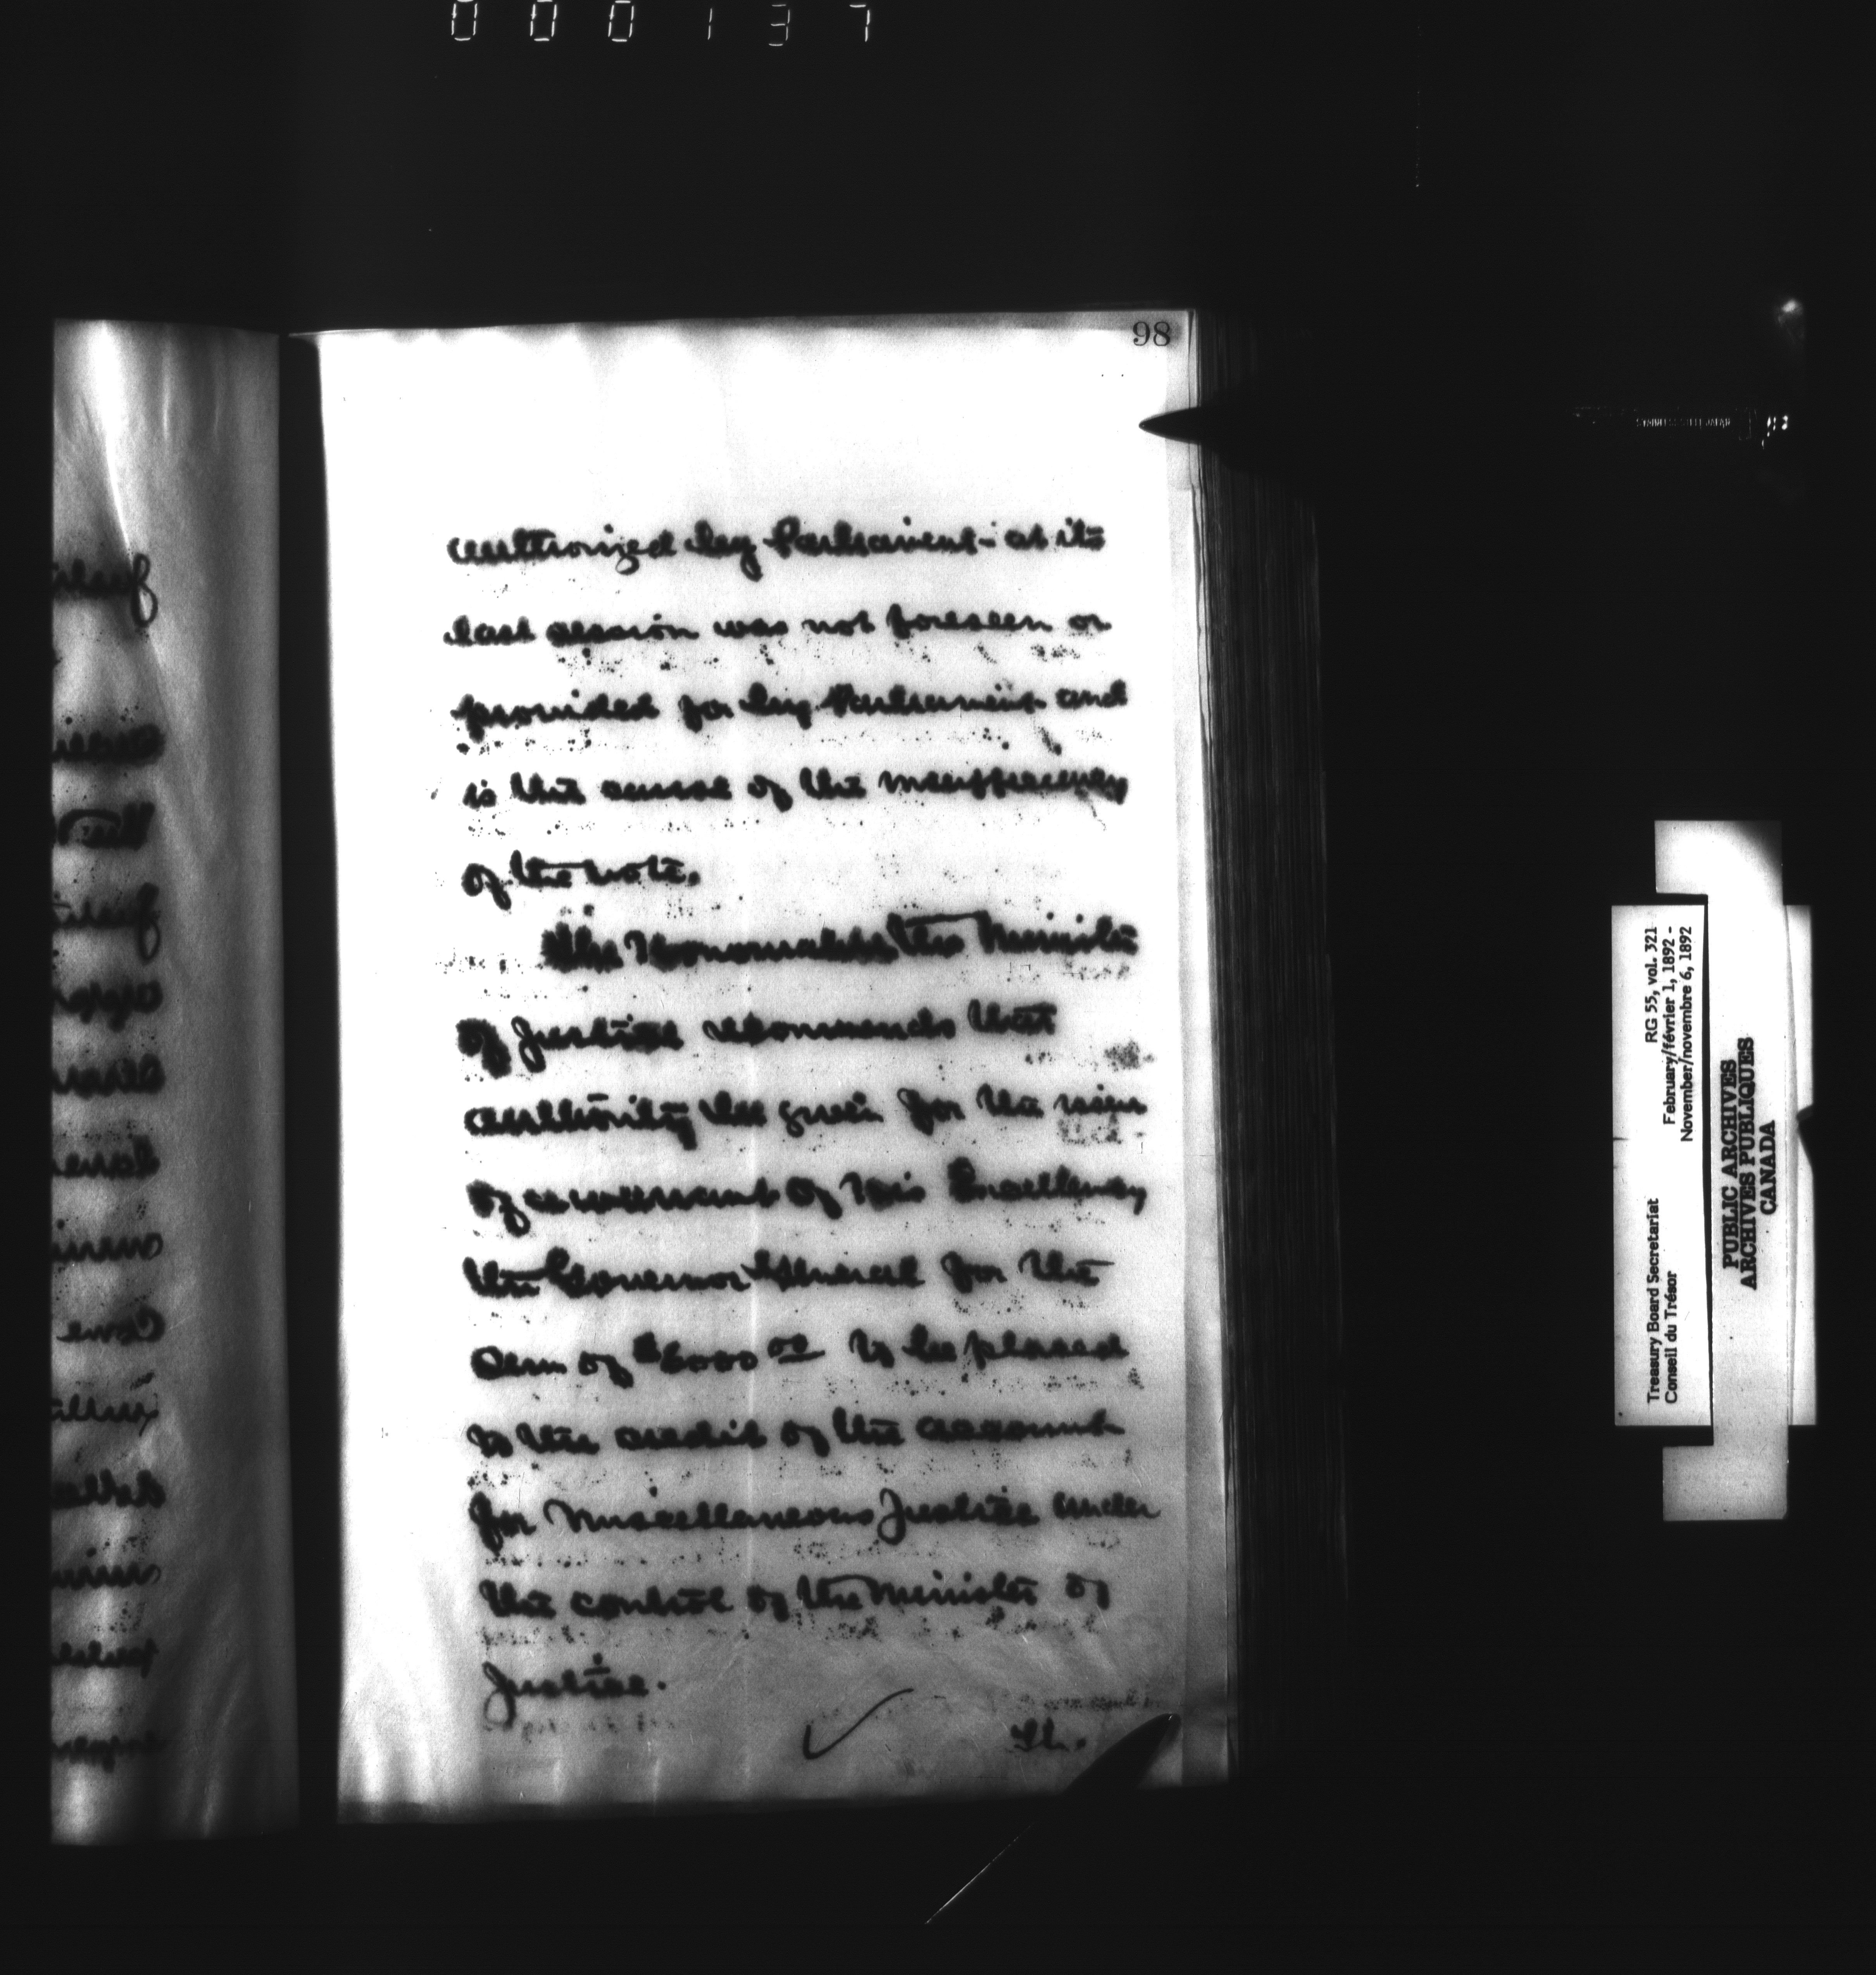 000137
98
authorized by Parliament at its
last session was not foreseen or
provided for by Parliament and
is the cause of the insufficiency
of the vote.
The Honourable the Minister
of Justice recommends that
authority be given for the issue
of a warrant of His Excellency
the Governor General for the
Sum of $6000 00 to be placed
to the credit of the account
for Miscellaneous Justice under
the control of the Minister of
Justice.
Treasury Board Secretariat RG 55, vol. 321
Conseil du Trésor February/février 1, 1892 -
November/novembre 6, 1892
PUBLIC ARCHIVES
ARCHIVES PUBLIQUES
CANADA